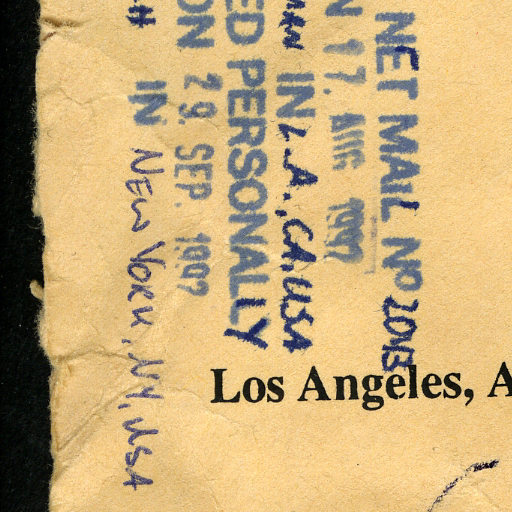 NET MAIL Nº 2013
N 17. AUG 1997
IN L.A., CA, USA
ED PERSONALLY
ON 29. SEP. 1997
IN NEW YORK, NY, USA
Los Angeles, A